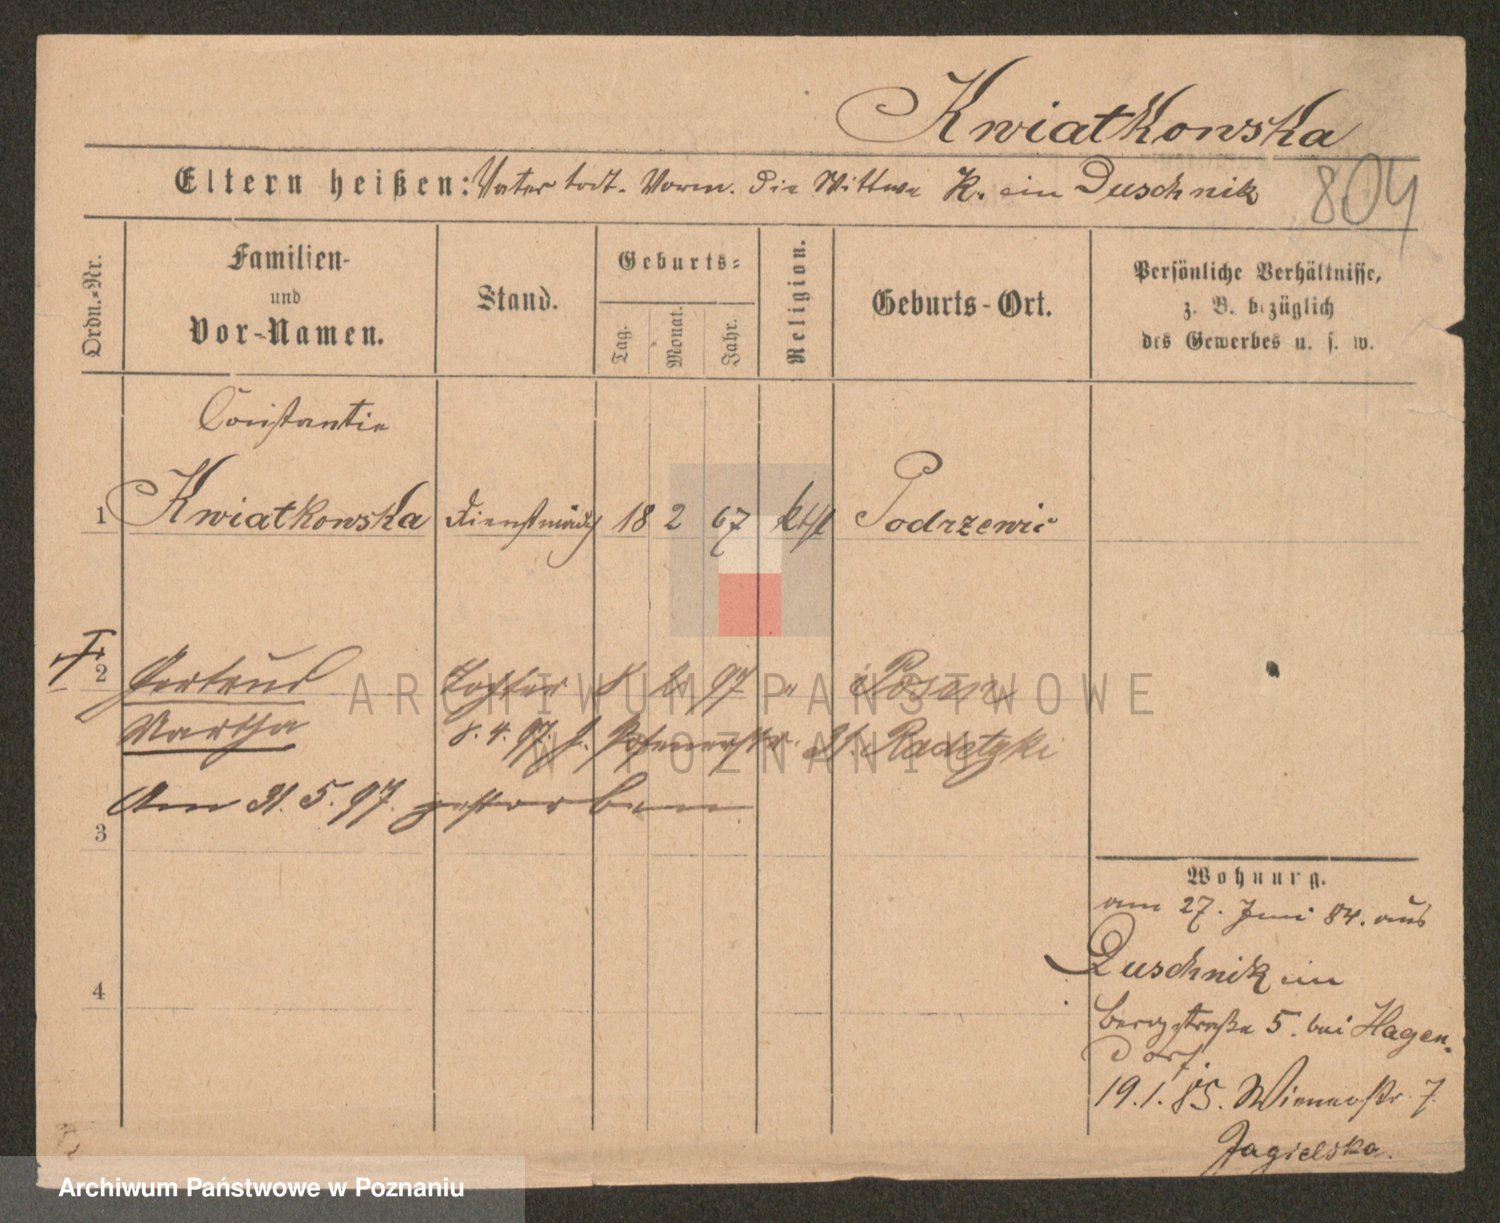 Kwiatkowska
Eltern heißen: Vater todt. Vorm. die Wittwe K. in Duschnik
804
Ordn.-Nr.
Familien-
und
Vor-Namen.
Stand.
Geburts-
Tag.
Monat.
Jahr.
Religion.
Geburts-Ort.
Persönliche Verhältnisse,
z. B. bezüglich
des Gewerbes u. s. w.
Constantia
1 Kwiatkowska Dienstmädch 18 2 67 kth Podrzewie
2 Gertrud Tochter 8 97 " Posen
Martha 8. 4. 97. St. Radetzki
Am 31. 5. 97. gestorben
3
4
Wohnung.
am 27. Juni 84. aus
Duschnik in
Bergstraße 5. bei Hagen-
dorf.
19. 1. 85. Wienerstr. 7.
Jagielska.
ARCHIWUM PAŃSTWOWE
W POZNANIU
Archiwum Państwowe w Poznaniu